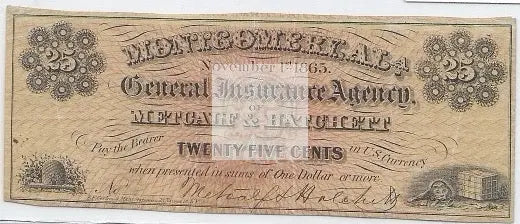 MONTGOMERY, ALA
November 1st 1865.
25 25
General Insurance Agency,
OF
METCALF & HATCHETT
Pay the Bearer
TWENTY FIVE CENTS
in U.S. Currency
when presented in sums of One Dollar or more.
No
Metcalf & Hatchett